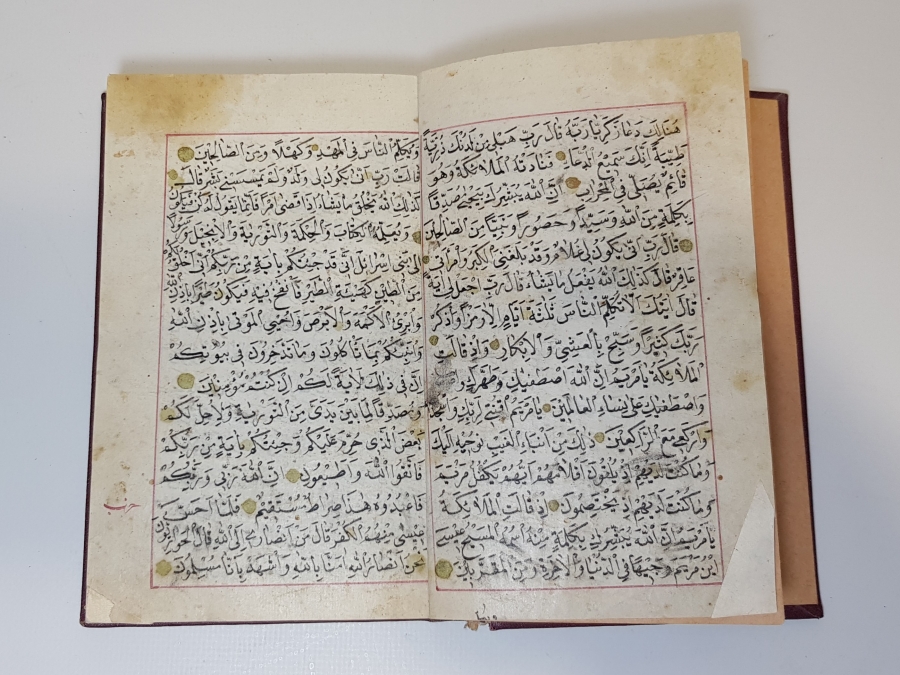 هُنَالِكَ دَعَا زَكَرِيَّا رَبَّهُ قَالَ رَبِّ هَبْ لِي مِنْ لَدُنْكَ ذُرِّيَّةً
طَيِّبَةً إِنَّكَ سَمِيعُ الدُّعَاءِ فَنَادَتْهُ الْمَلَائِكَةُ وَهُوَ
قَائِمٌ يُصَلِّي فِي الْمِحْرَابِ أَنَّ اللَّهَ يُبَشِّرُكَ بِيَحْيَى مُصَدِّقًا
بِكَلِمَةٍ مِنَ اللَّهِ وَسَيِّدًا وَحَصُورًا وَنَبِيًّا مِنَ الصَّالِحِينَ
قَالَ رَبِّ أَنَّى يَكُونُ لِي غُلَامٌ وَقَدْ بَلَغَنِيَ الْكِبَرُ وَامْرَأَتِي
عَاقِرٌ قَالَ كَذَلِكَ اللَّهُ يَفْعَلُ مَا يَشَاءُ قَالَ رَبِّ اجْعَلْ لِي آيَةً
قَالَ آيَتُكَ أَلَّا تُكَلِّمَ النَّاسَ ثَلَاثَةَ أَيَّامٍ إِلَّا رَمْزًا وَاذْكُرْ
رَبَّكَ كَثِيرًا وَسَبِّحْ بِالْعَشِيِّ وَالْإِبْكَارِ وَإِذْ قَالَتِ
الْمَلَائِكَةُ يَا مَرْيَمُ إِنَّ اللَّهَ اصْطَفَيكِ وَطَهَّرَكِ
وَاصْطَفَيكِ عَلَى نِسَاءِ الْعَالَمِينَ يَا مَرْيَمُ اقْنُتِي لِرَبِّكِ وَاسْجُدِي
وَارْكَعِي مَعَ الرَّاكِعِينَ ذَلِكَ مِنْ أَنْبَاءِ الْغَيْبِ نُوحِيهِ إِلَيْكَ
وَمَا كُنْتَ لَدَيْهِمْ إِذْ يُلْقُونَ أَقْلَامَهُمْ أَيُّهُمْ يَكْفُلُ مَرْيَمَ
وَمَا كُنْتَ لَدَيْهِمْ إِذْ يَخْتَصِمُونَ إِذْ قَالَتِ الْمَلَائِكَةُ
يَا مَرْيَمُ إِنَّ اللَّهَ يُبَشِّرُكِ بِكَلِمَةٍ مِنْهُ اسْمُهُ الْمَسِيحُ عِيسَى
ابْنُ مَرْيَمَ وَجِيهًا فِي الدُّنْيَا وَالْآخِرَةِ وَمِنَ الْمُقَرَّبِينَ
وَيُكَلِّمُ النَّاسَ فِي الْمَهْدِ وَكَهْلًا وَمِنَ الصَّالِحِينَ
قَالَتْ رَبِّ أَنَّى يَكُونُ لِي وَلَدٌ وَلَمْ يَمْسَسْنِي بَشَرٌ قَالَ
كَذَلِكِ اللَّهُ يَخْلُقُ مَا يَشَاءُ إِذَا قَضَى أَمْرًا فَإِنَّمَا يَقُولُ لَهُ كُنْ فَيَكُونُ
وَيُعَلِّمُهُ الْكِتَابَ وَالْحِكْمَةَ وَالتَّوْرَيةَ وَالْإِنْجِيلَ وَرَسُولًا
إِلَى بَنِي إِسْرَائِلَ أَنِّي قَدْ جِئْتُكُمْ بِآيَةٍ مِنْ رَبِّكُمْ أَنِّي أَخْلُقُ لَكُمْ
مِنَ الطِّينِ كَهَيْئَةِ الطَّيْرِ فَأَنْفُخُ فِيهِ فَيَكُونُ طَيْرًا بِإِذْنِ اللَّهِ
وَأُبْرِئُ الْأَكْمَهَ وَالْأَبْرَصَ وَأُحْيِي الْمَوْتَى بِإِذْنِ اللَّهِ
وَأُنَبِّئُكُمْ بِمَا تَأْكُلُونَ وَمَا تَدَّخِرُونَ فِي بُيُوتِكُمْ
إِنَّ فِي ذَلِكَ لَآيَةً لَكُمْ إِنْ كُنْتُمْ مُؤْمِنِينَ
وَمُصَدِّقًا لِمَا بَيْنَ يَدَيَّ مِنَ التَّوْرَيةِ وَلِأُحِلَّ لَكُمْ
بَعْضَ الَّذِي حُرِّمَ عَلَيْكُمْ وَجِئْتُكُمْ بِآيَةٍ مِنْ رَبِّكُمْ
فَاتَّقُوا اللَّهَ وَأَطِيعُونِ إِنَّ اللَّهَ رَبِّي وَرَبُّكُمْ
فَاعْبُدُوهُ هَذَا صِرَاطٌ مُسْتَقِيمٌ فَلَمَّا أَحَسَّ
عِيسَى مِنْهُمُ الْكُفْرَ قَالَ مَنْ أَنْصَارِي إِلَى اللَّهِ قَالَ الْحَوَارِيُّونَ
نَحْنُ أَنْصَارُ اللَّهِ آمَنَّا بِاللَّهِ وَاشْهَدْ بِأَنَّا مُسْلِمُونَ
حزب